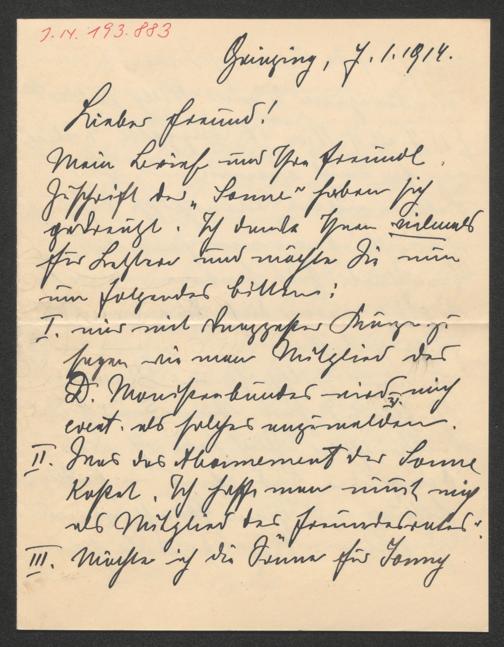 J.N. 193.883
Grinzing, 7.1.1914.
Lieber Freund!
Mein Brief und Ihre freundl.
Zuschrift der „Sonne" haben sich
gekreuzt. Ich danke Ihnen vielmals
für Letztere und möchte Sie nun
um folgendes bitten:
I. mir mit knappester Kürze zu
sagen wie man Mitglied des
D. Monistenbundes wird u. mich
event. als solches anzumelden.
II. Was das Abonnement der Sonne
kostet. Ich hoffe man nimmt mich
als Mitglied des Freundesrates".
III. Möchte ich die Sonne für